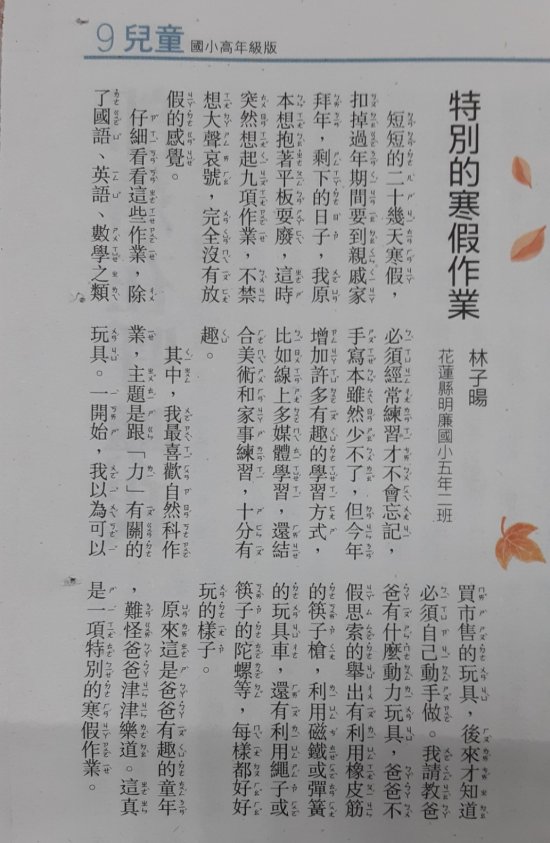 9 兒童 國小高年級版
特別的寒假作業
林子暘
花蓮縣明廉國小五年二班
短短的二十幾天寒假，
扣掉過年期間要到親戚家
拜年，剩下的日子，我原
本想抱著平板耍廢，這時
突然想起九項作業，不禁
想大聲哀號，完全沒有放
假的感覺。
仔細看看這些作業，除
了國語、英語、數學之類
必須經常練習才不會忘記，
手寫本雖然少不了，但今年
增加許多有趣的學習方式，
比如線上多媒體學習，還結
合美術和家事練習，十分有
趣。
其中，我最喜歡自然科作
業，主題是跟「力」有關的
玩具。一開始，我以為可以
買市售的玩具，後來才知道
必須自己動手做。我請教爸
爸有什麼動力玩具，爸爸不
假思索的舉出有利用橡皮筋
的筷子槍，利用磁鐵或彈簧
的玩具車，還有利用繩子或
筷子的陀螺等，每樣都好好
玩的樣子。
原來這是爸爸有趣的童年
，難怪爸爸津津樂道。這真
是一項特別的寒假作業。